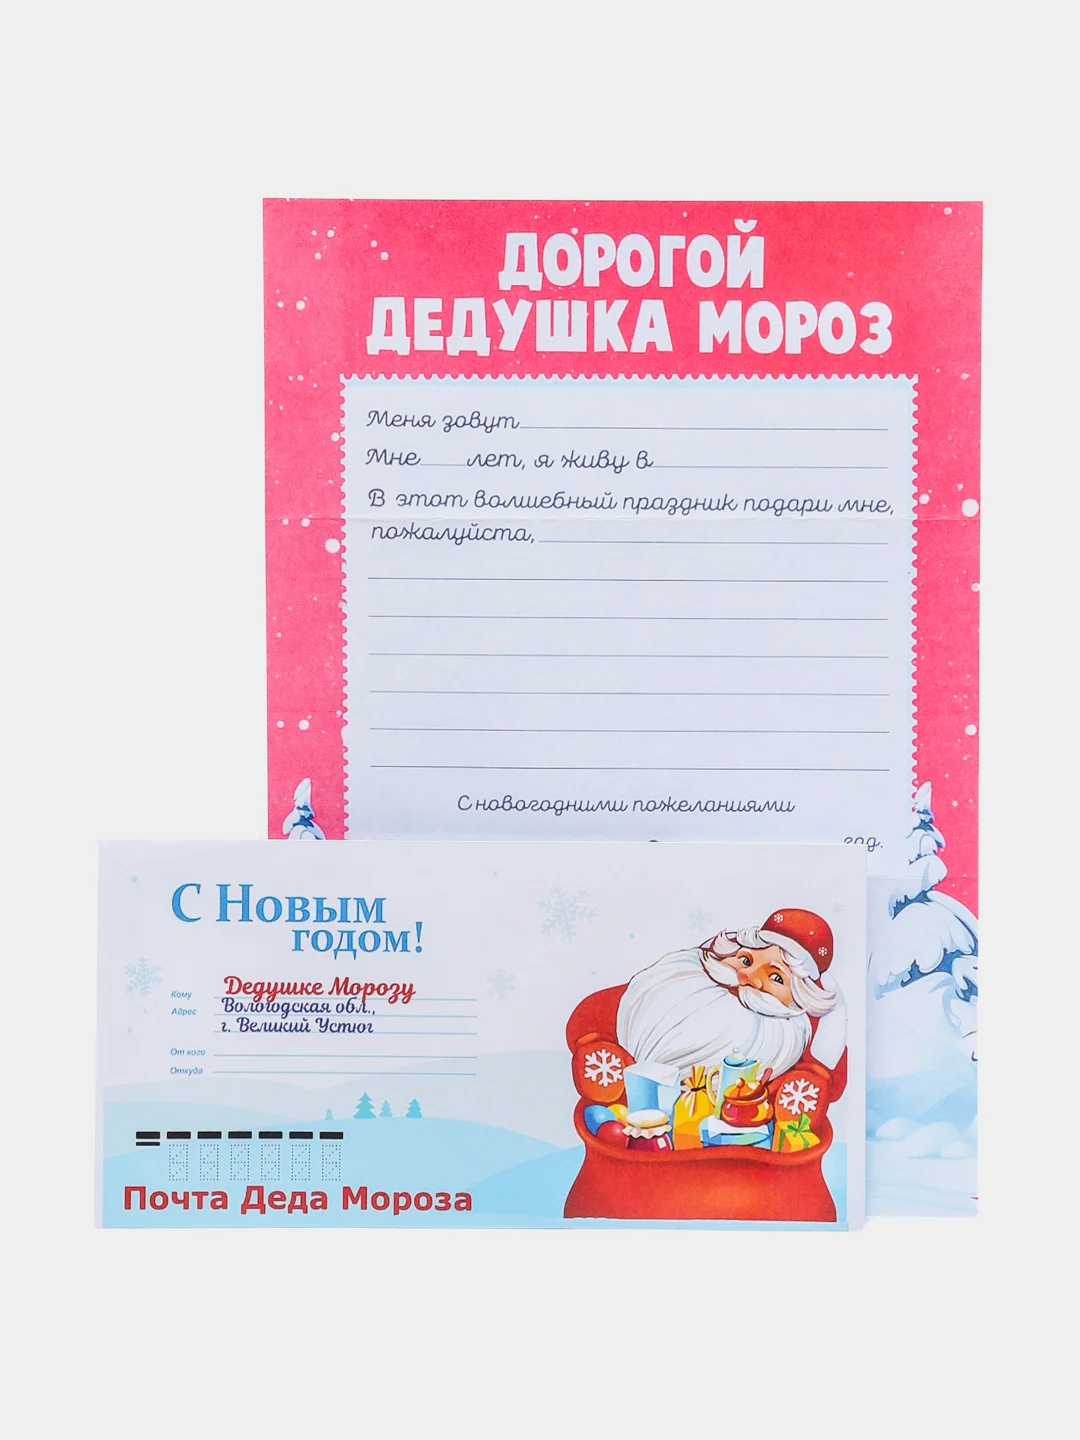 ДОРОГОЙ
ДЕДУШКА МОРОЗ
Меня зовут
Мне лет, я живу в
В этот волшебный праздник подари мне,
пожалуйста,
С новогодними пожеланиями
год.
С Новым
годом!
Кому Дедушке Морозу
Адрес Вологодская обл.,
г. Великий Устюг
От кого
Откуда
Почта Деда Мороза